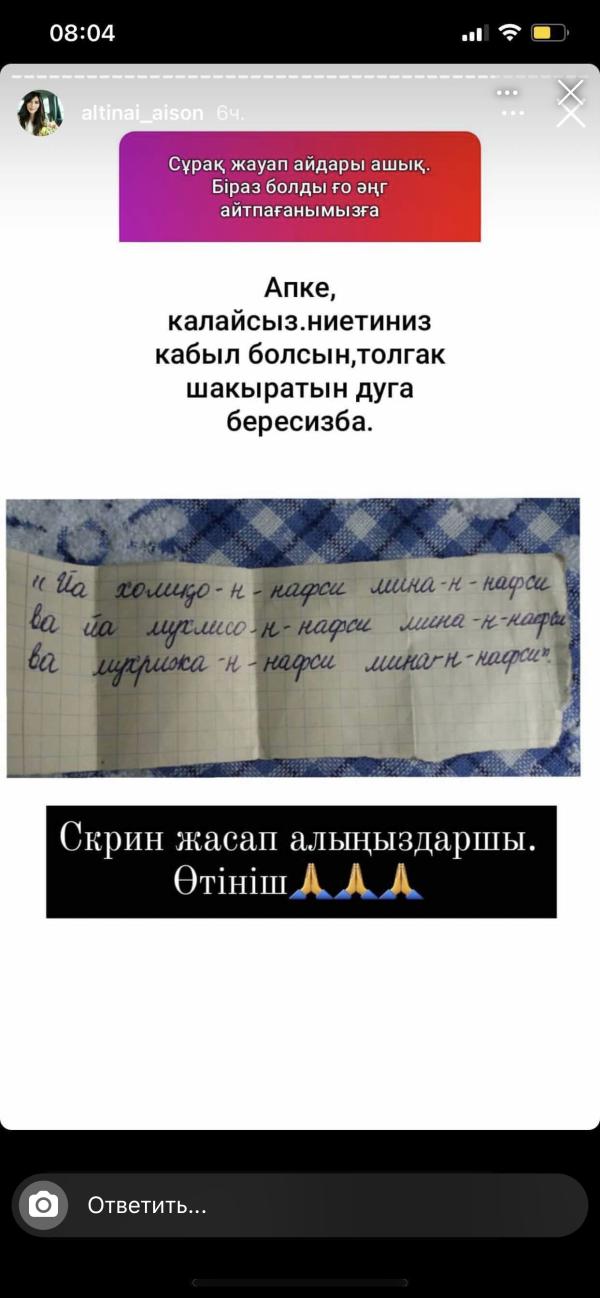 08:04
altinai_aison 6ч.
Сұрақ жауап айдары ашық.
Біраз болды ғо әңг
айтпағанымызға
Апке,
калайсыз.ниетиниз
кабыл болсын,толгак
шакыратын дуга
бересизба.
"Йа холиқо-н-нафси мина-н-нафси
ва йа мухлисо-н-нафси мина-н-нафси
ва мухрижа-н-нафси мина-н-нафси".
Скрин жасап алыңыздаршы.
Өтініш🙏🙏🙏
Ответить...